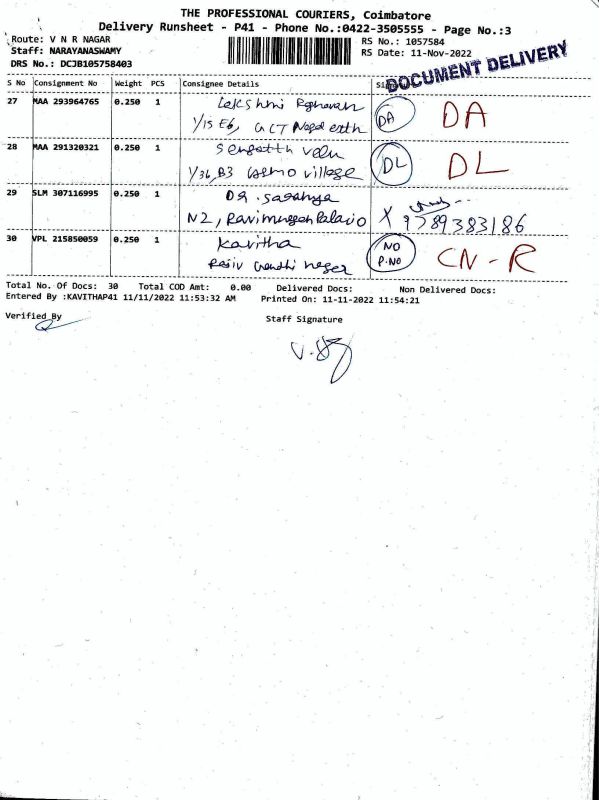 THE PROFESSIONAL COURIERS, Coimbatore
Delivery Runsheet - P41 - Phone No.:0422-3505555 - Page No.:3
Route: V N R NAGAR
RS No.: 1057584
Staff: NARAYANASWAMY
RS Date: 11-Nov-2022
DRS No.: DCJB105758403
DOCUMENT DELIVERY
S No Consignment No Weight PCS Consignee Details
27 MAA 293964765 0.250 1 Lakshmi Raghavan DA DA
1/15 E6,
28 MAA 291320321 0.250 1 velu DL DL
1/36, B3 village
29 SLM 307116995 0.250 1 DR. Saranya
N2, X 9789383186
30 VPL 215850059 0.250 1 Kavitha NO P.NO CN-R
Gandhi nager
Total No. Of Docs: 30 Total COD Amt: 0.00 Delivered Docs: Non Delivered Docs:
Entered By :KAVITHAP41 11/11/2022 11:53:32 AM Printed On: 11-11-2022 11:54:21
Verified By
Staff Signature